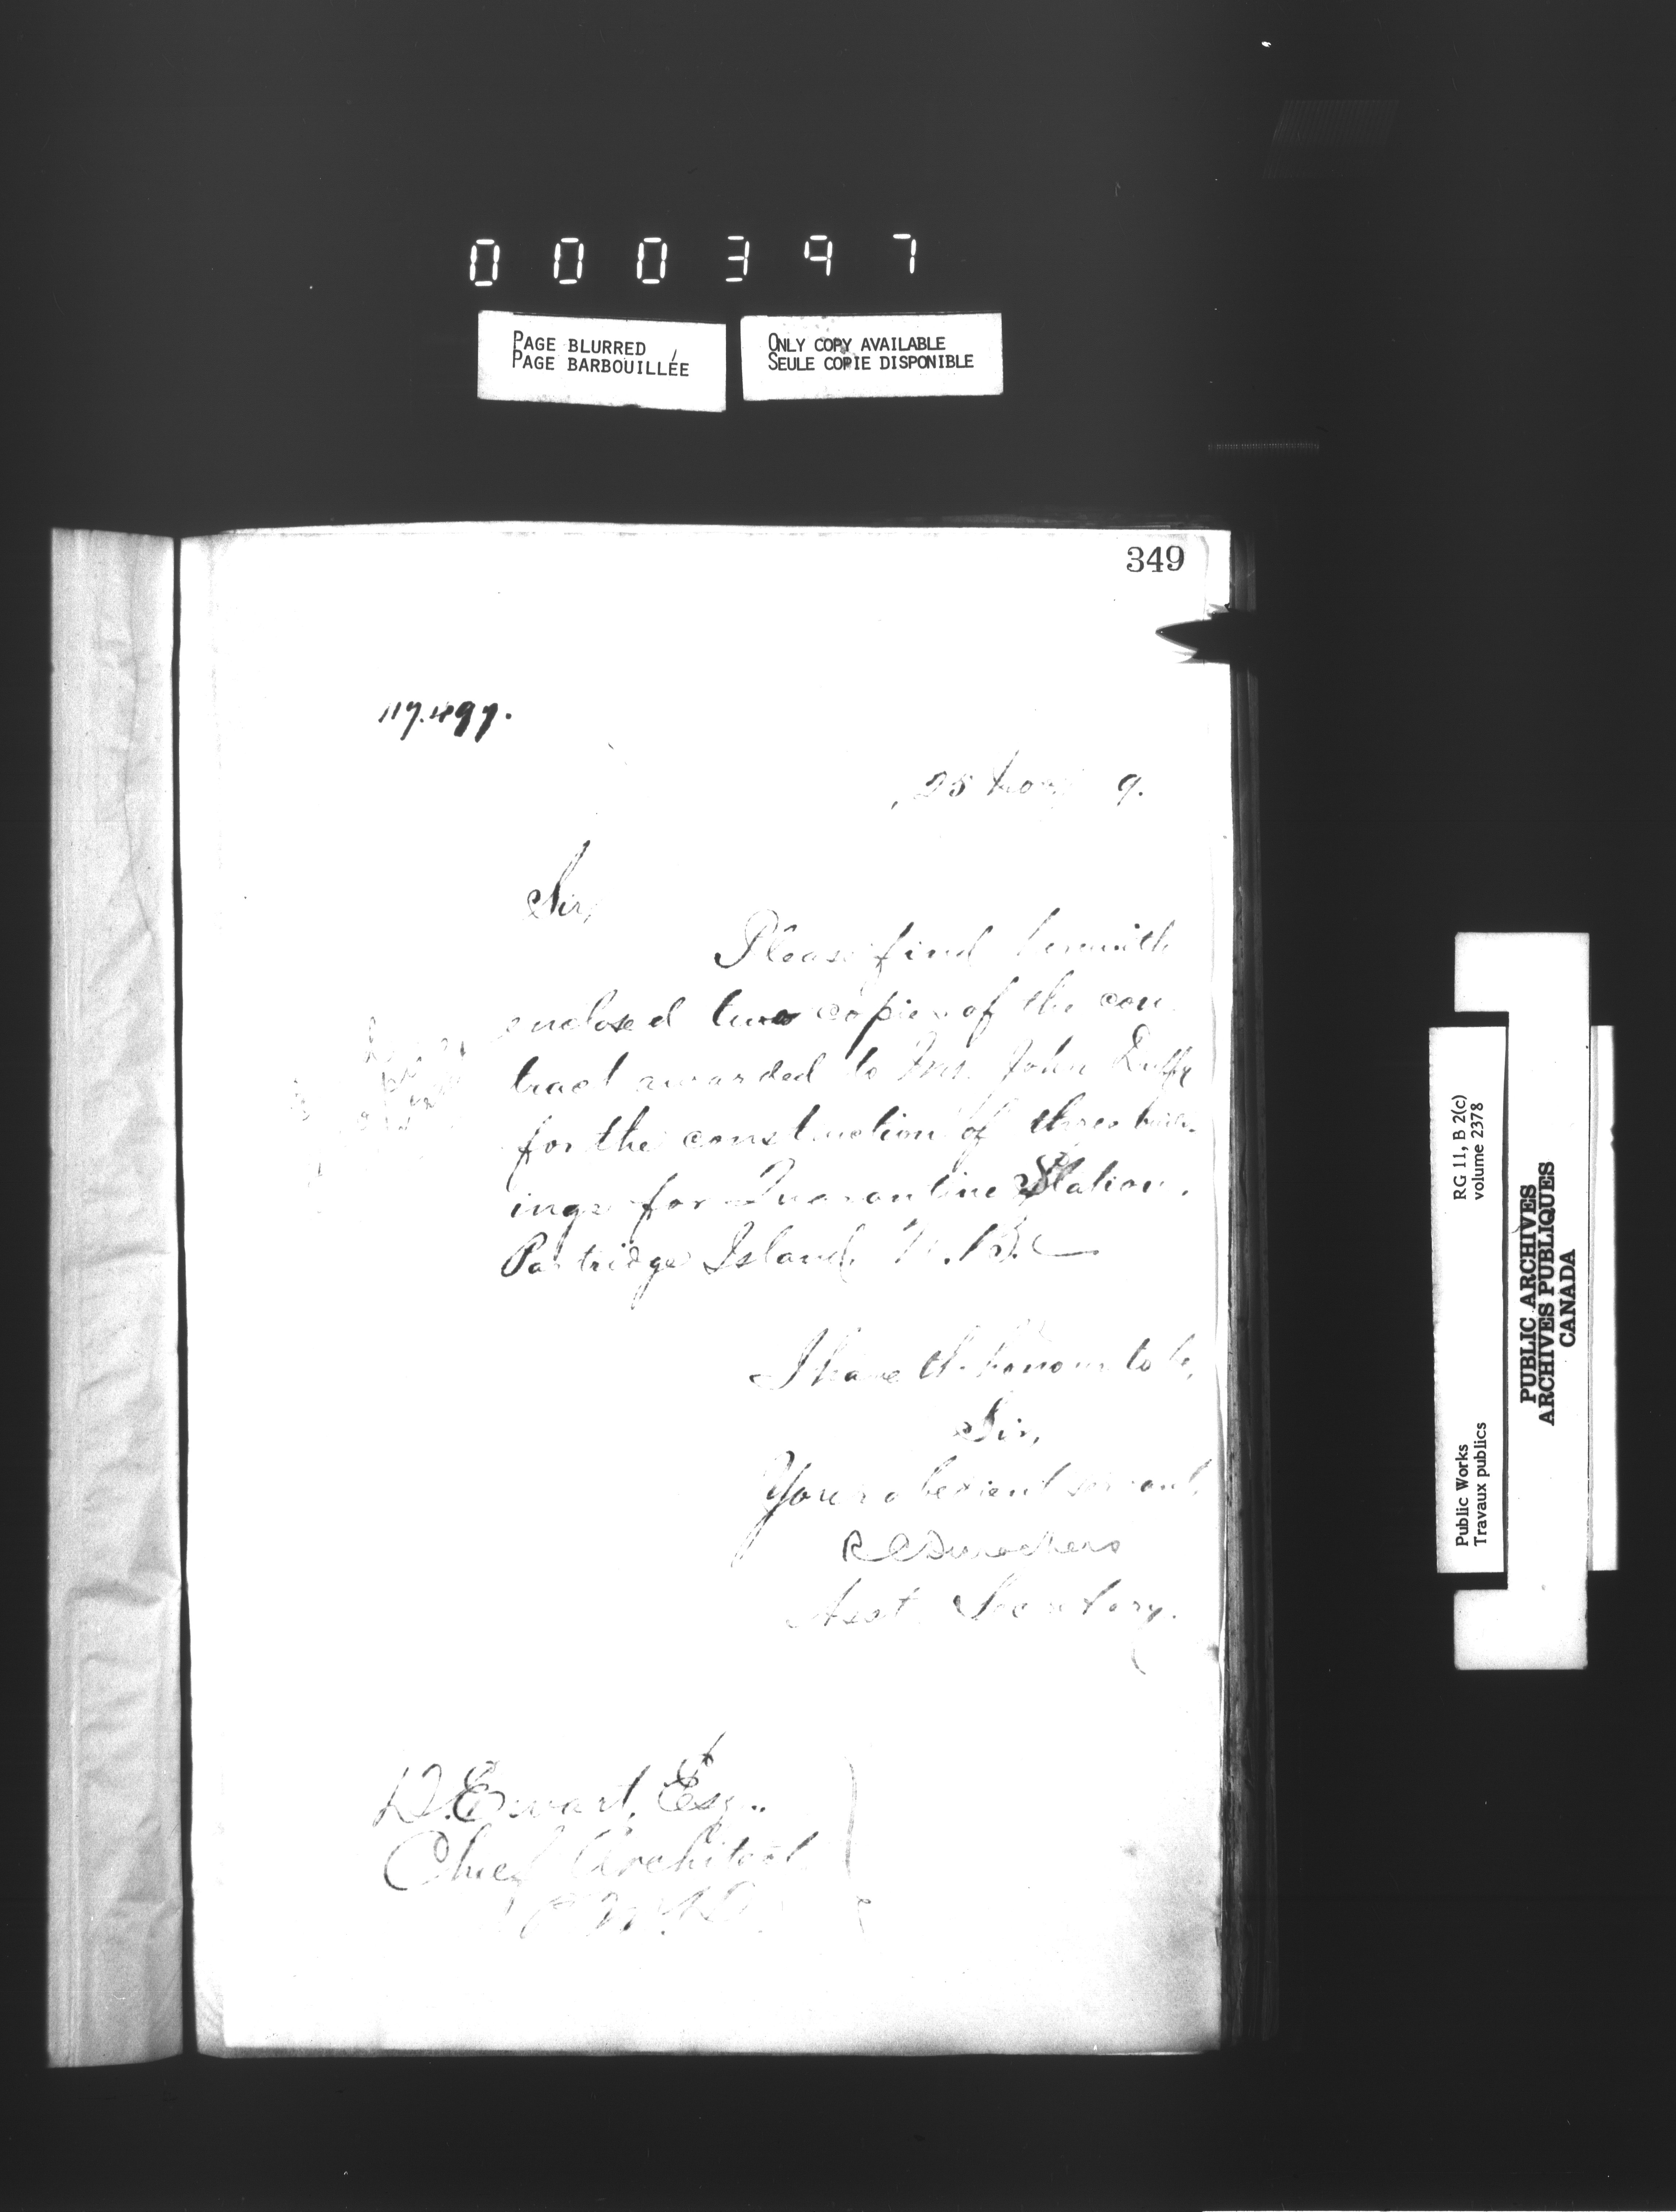 000397
PAGE BLURRED
PAGE BARBOUILLÉE
ONLY COPY AVAILABLE
SEULE COPIE DISPONIBLE
349
117.497.
25 Nov 9.
Sir,
Please find herewith
enclosed two copies of the con
tract awarded to Mr. John Duffy
for the construction of three build-
ings for Quarantine Station,
Partridge Island, N.B.
I have the honour to be,
Sir,
Your obedient servant,
Asst. Secretary.
D. Ewart, Esq.
Chief Architect
RG 11, B 2(c)
volume 2378
Public Works
Travaux publics
PUBLIC ARCHIVES
ARCHIVES PUBLIQUES
CANADA